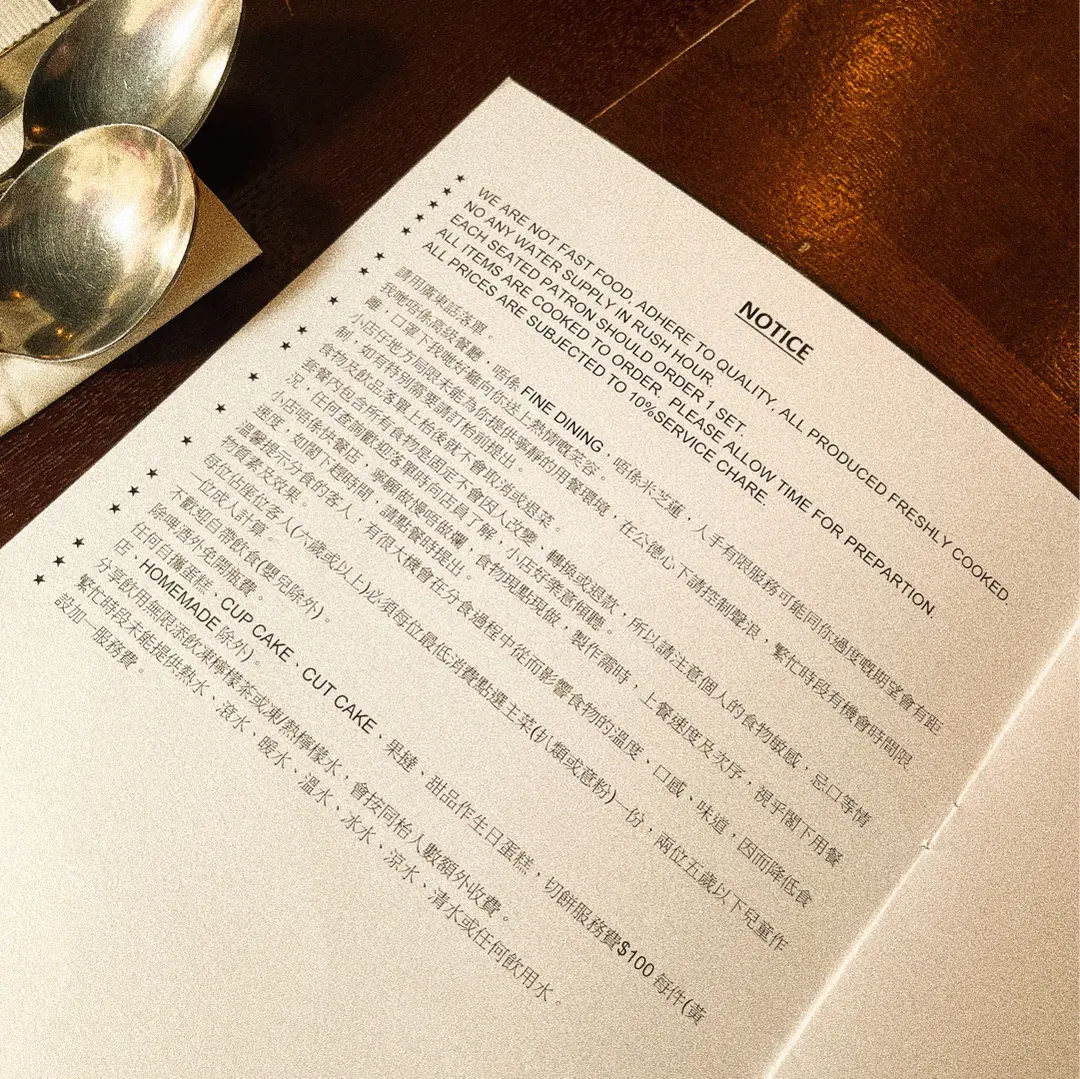 NOTICE
WE ARE NOT FAST FOOD, ADHERE TO QUALITY, ALL PRODUCED FRESHLY COOKED.
NO ANY WATER SUPPLY IN RUSH HOUR.
EACH SEATED PATRON SHOULD ORDER 1 SET.
ALL ITEMS ARE COOKED TO ORDER, PLEASE ALLOW TIME FOR PREPARTION.
ALL PRICES ARE SUBJECTED TO 10%SERVICE CHARE.
請用廣東話落單。
我哋唔係高級餐廳，唔係 FINE DINING，唔係米芝蓮，人手有限服務可能同你過度嘅期望會有距
離，口罩下我哋好難向你送上熱情嘅笑容。
小店仔地方局限未能為你提供寧靜的用餐環境，在公德心下請控制聲浪，繁忙時段有機會時間限
制，如有特別需要請訂枱前提出。
食物及飲品落單上枱後就不會取消或退菜。
套餐內包含所有食物是固定不會因人改變、轉換或退款，所以請注意個人的食物敏感，忌口等情
況，任何查詢歡迎落單時向店員了解，小店好樂意傾聽。
小店唔係快餐店，寧願做慢唔做爛，食物現點現做，製作需時，上餐速度及次序，視乎閣下用餐
速度，如閣下趕時間，請點餐時提出。
溫馨提示分食的客人，有很大機會在分食過程中從而影響食物的溫度、口感、味道，因而降低食
物質素及效果。
每位佔座位客人(六歲或以上)必須每位最低消費點選主菜(扒類或意粉)一份，兩位五歲以下兒童作
一位成人計算。
不歡迎自帶飲食(嬰兒除外)。
除啤酒外免開瓶費。
任何自攜蛋糕、CUP CAKE、CUT CAKE、果撻、甜品作生日蛋糕，切餅服務費$100 每件(黃
店，HOMEMADE 除外)。
分享飲用無限添飲凍檸檬茶或凍/熱檸檬水，會按同枱人數額外收費。
繁忙時段未能提供熱水、滾水、暖水、溫水、冰水、涼水、清水或任何飲用水。
設加一服務費。